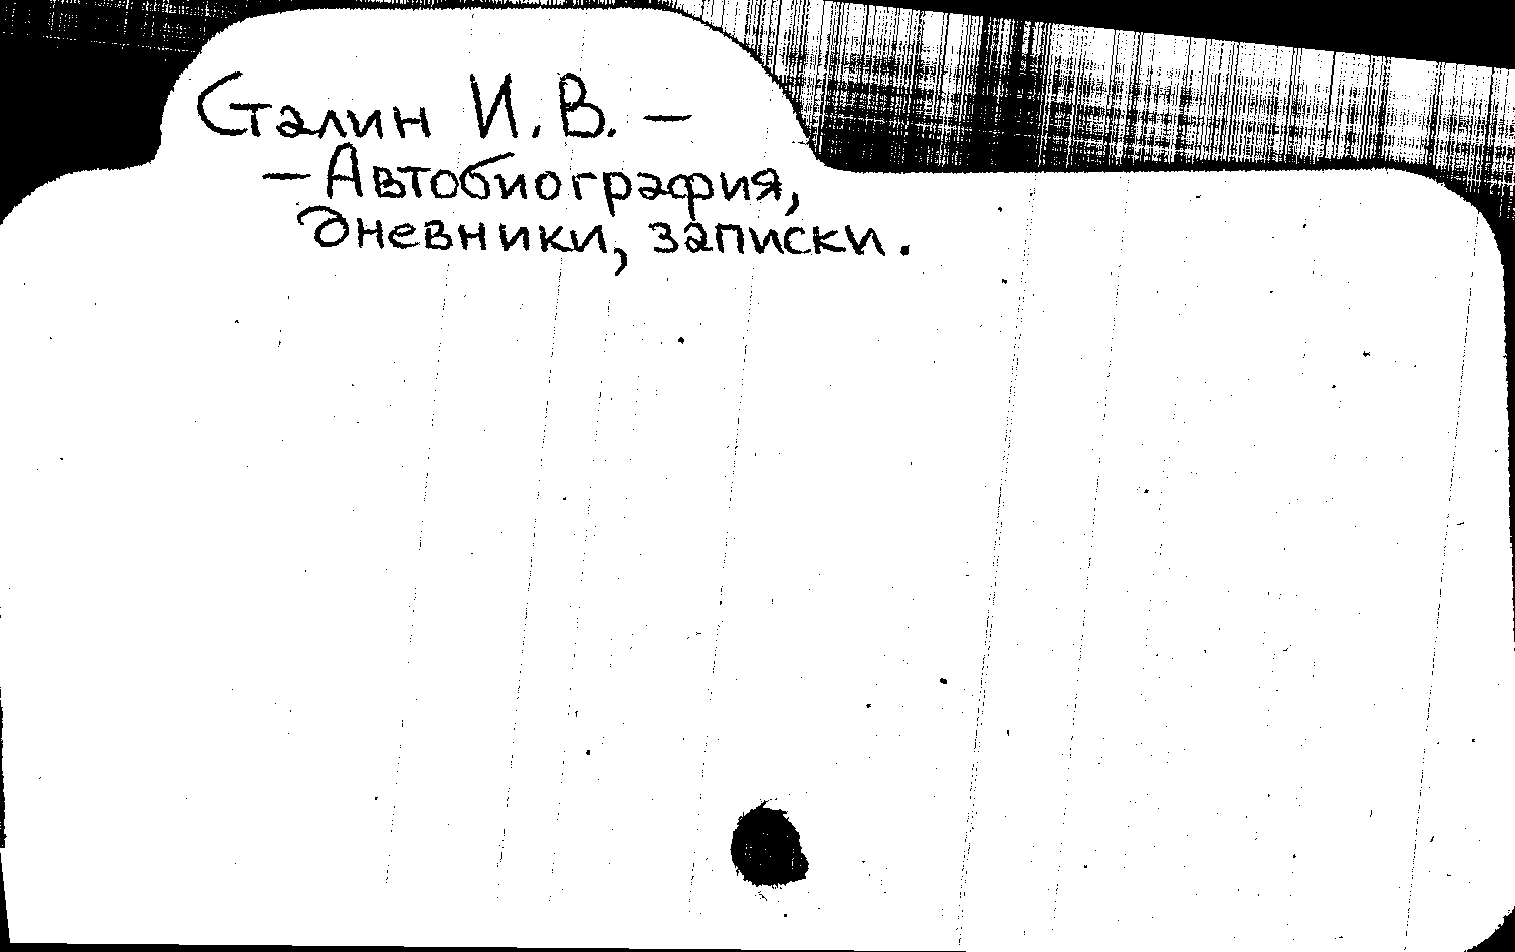 Сталин И.В. –
– Автобиография,
дневники, записки.